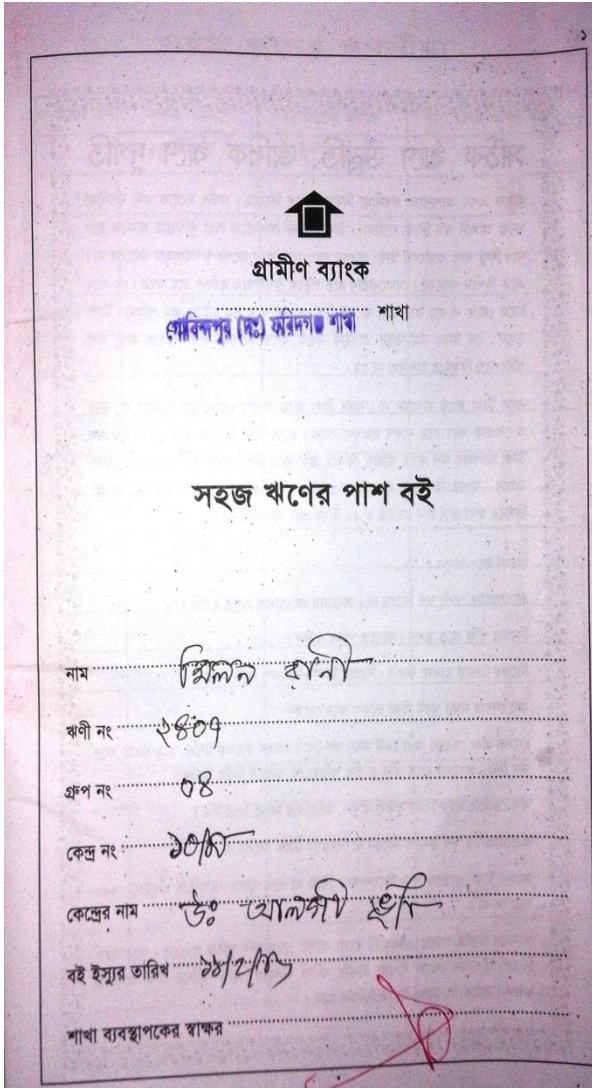 ১
গ্রামীণ ব্যাংক
গোবিন্দপুর (দঃ) ফরিদগঞ্জ শাখা শাখা
সহজ ঋণের পাশ বই
নাম মিলন রানী
ঋণী নং ২৪০৭
গ্রুপ নং ০৪
কেন্দ্র নং
কেন্দ্রের নাম উঃ
বই ইস্যুর তারিখ
শাখা ব্যবস্থাপকের স্বাক্ষর